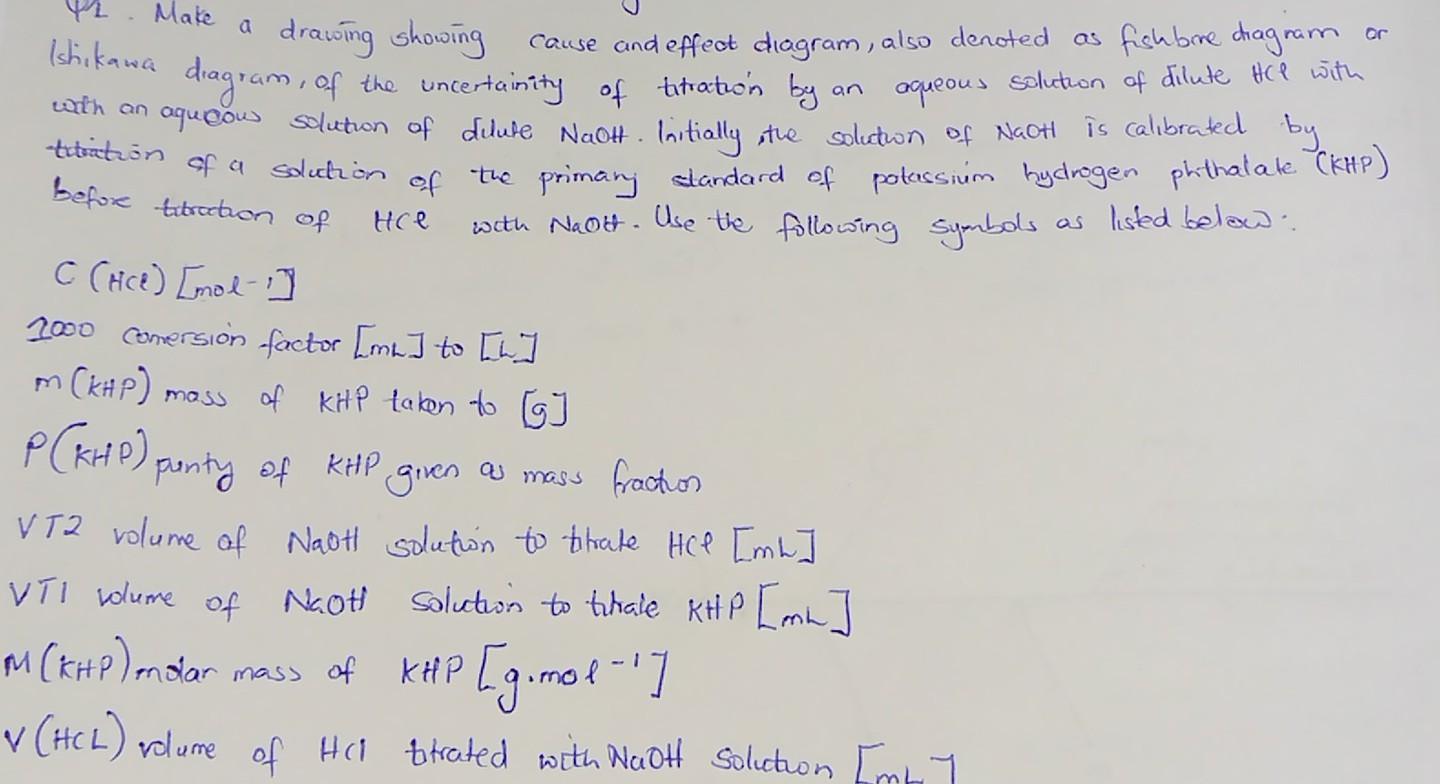 Q1. Make a drawing showing cause and effect diagram, also denoted as fishbone diagram or
Ishikawa diagram, of the uncertainity of titration by an aqueous solution of dilute HCl with
with an aqueous solution of dilute NaOH. Initially, the solution of NaOH is calibrated by
titration of a solution of the primary standard of potassium hydrogen phthalate (KHP)
before titration of HCl with NaOH. Use the following symbols as listed below:
C (HCl) [mol-1]
1000 conversion factor [mL] to [L]
m (KHP) mass of KHP taken to [g]
P(KHP) purity of KHP given as mass fraction
VT2 volume of NaOH solution to titrate HCl [mL]
VT1 volume of NaOH solution to titrate KHP [mL]
M (KHP) molar mass of KHP [g.mol-1]
V (HCL) volume of HCl titrated with NaOH solution [mL]